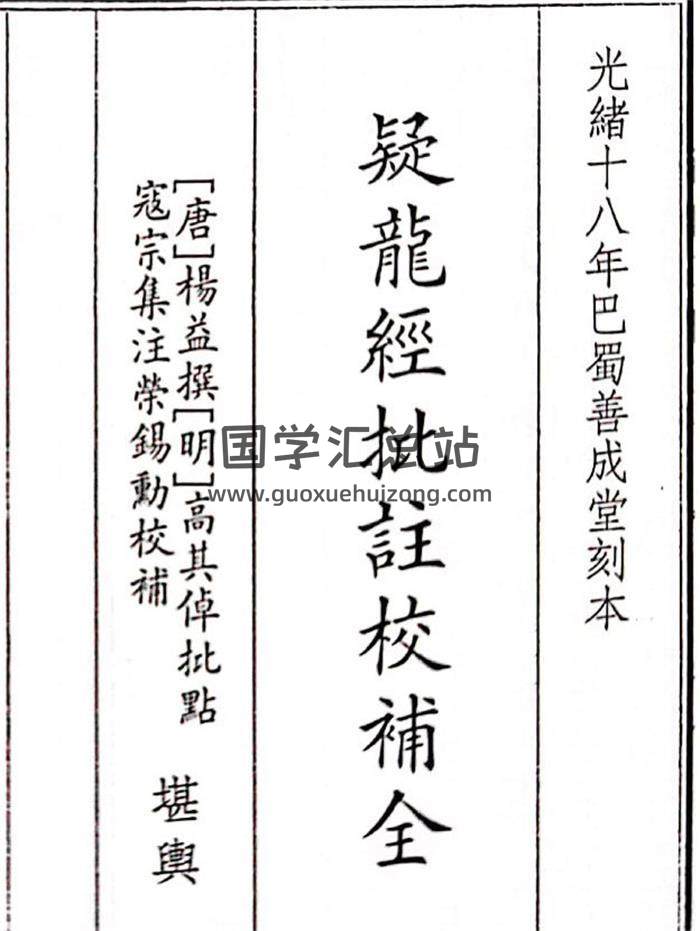 光緒十八年巴蜀善成堂刻本
疑龍經批註校補全
[唐]楊益撰[明]高其倬批點
寇宗集注榮錫勳校補
堪輿
国学汇总站
www.guoxuehuizong.com